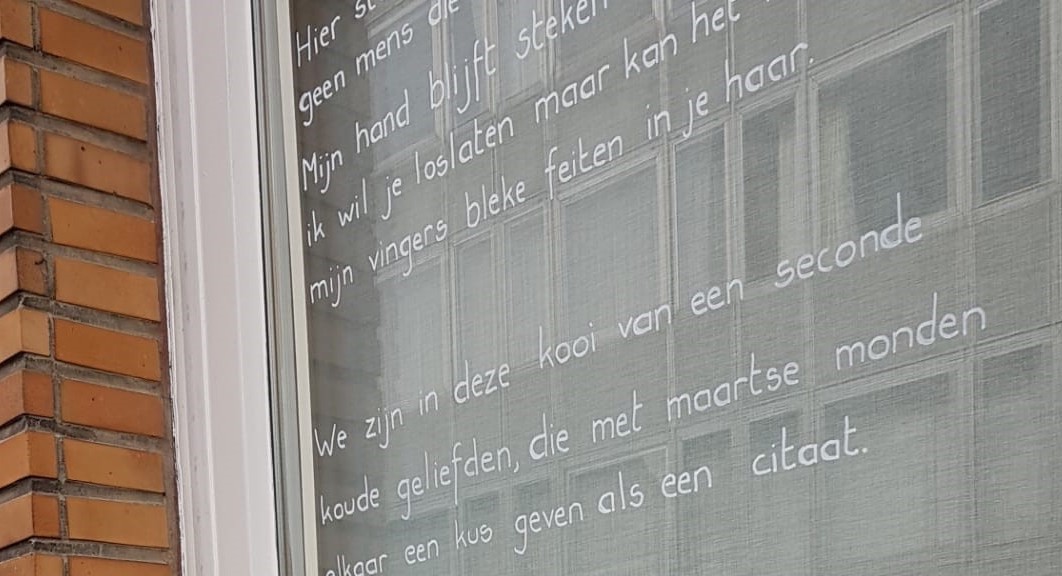 Hier
geen mens die
Mijn hand blijft steken
ik wil je loslaten maar kan het
mijn vingers bleke feiten in je haar.
We zijn in deze kooi van een seconde
koude geliefden, die met maartse monden
elkaar een kus geven als een citaat.